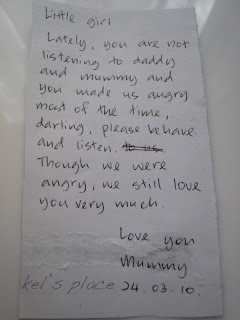 Little girl
Lately, you are not
listening to daddy
and mummy and
you made us angry
most of the time,
darling, please behave
and listen. to us.
Though we were
angry, we still love
you very much.
Love you
Mummy
kel's place 24.03.10.